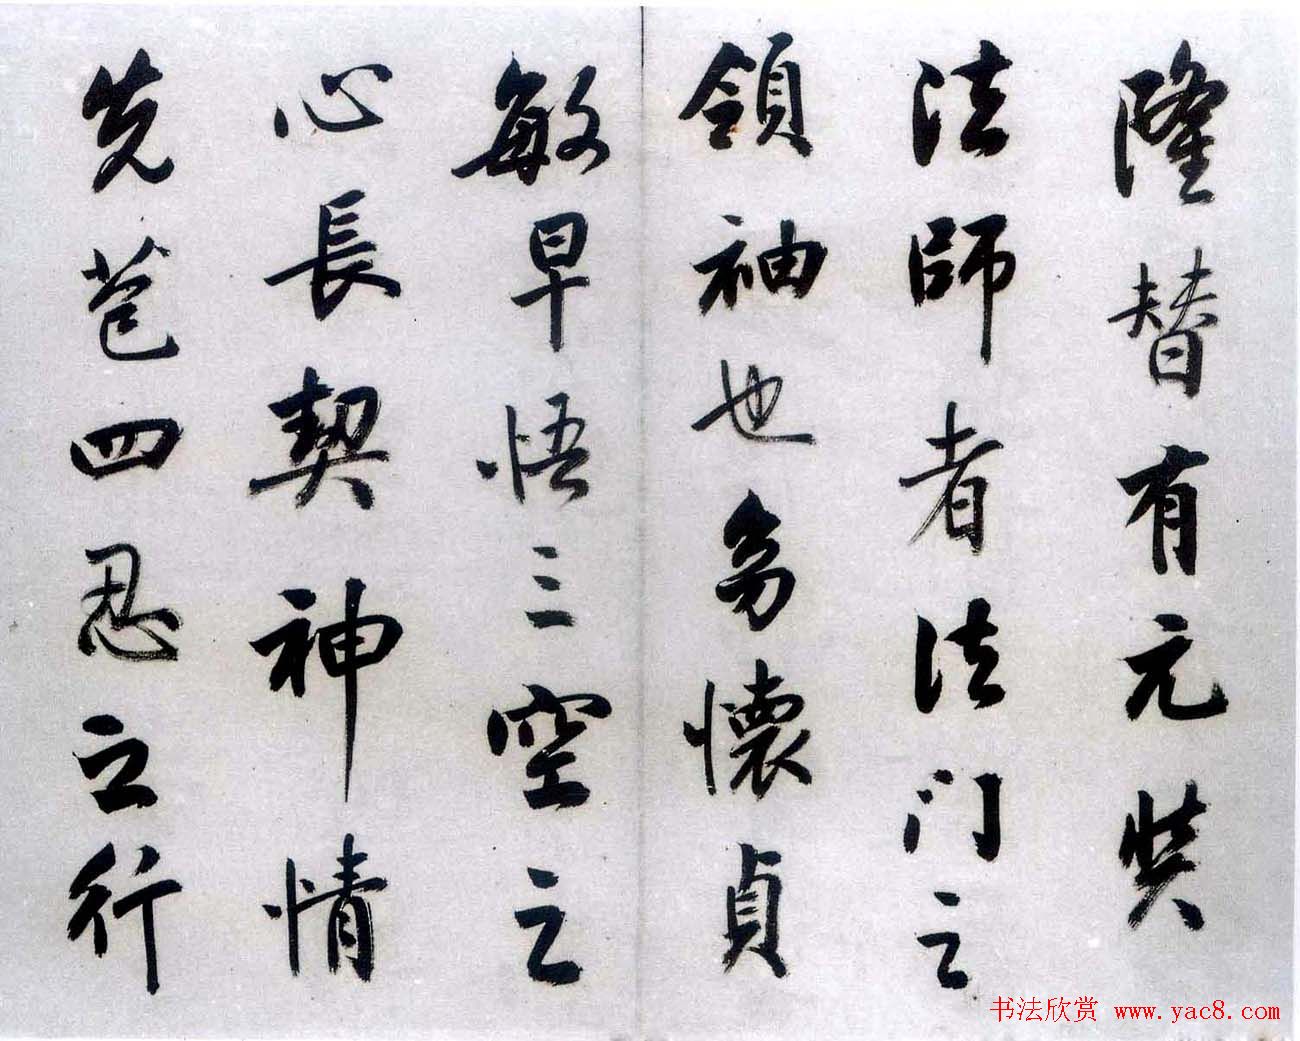 隆替有元奘
法師者法门之
領袖也幼懷貞
敏早悟三空之
心長契神情
先苞四忍之行
书法欣赏 www.yac8.com